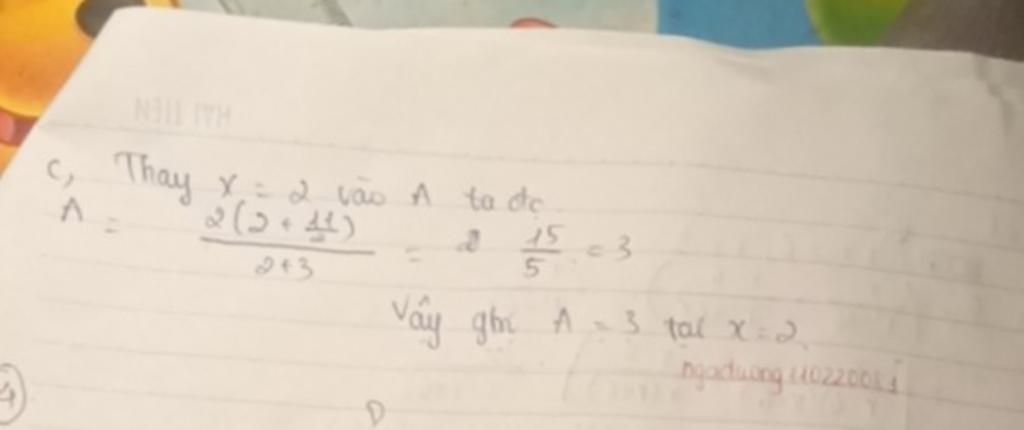 c, Thay x = 2 vào A ta đc
A = 2(2 + 11/2) / 2+3 = 15/5 = 3
Vậy gtri A = 3 tại x = 2.
ngaduong11022001
4
D